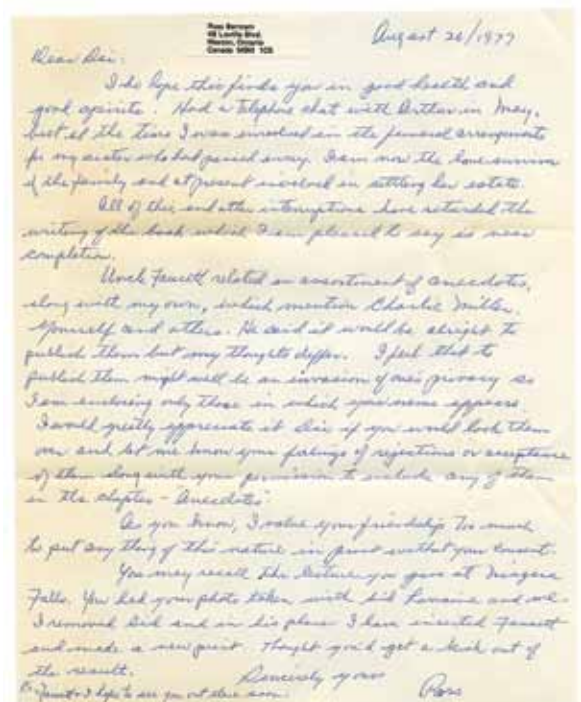 Ross Bertram
August 20/1977
Dear Dai:
I do hope this finds you in good health and
good spirits. Had a telephone chat with Arthur in May,
but at the time I was involved in the funeral arrangements
for my sister who had passed away. I am now the lone survivor
of the family and at present involved in settling her estate.
All of this and other interruptions have retarded the
writing of the book which I am pleased to say is near
completion.
Uncle Faucett related an assortment of anecdotes,
along with my own, which mention Charlie Miller,
yourself and others. He said it would be alright to
publish them but my thoughts differ. I feel that to
publish them might well be an invasion of one's privacy so
I am enclosing only those in which your name appears
I would greatly appreciate it Dai if you would look them
over and let me know your feelings of rejections or acceptance
of them along with your permission to include any of them
in the chapter - Anecdotes
As you know, I value your friendship too much
to put any thing of this nature in print without your consent.
You may recall the lecture you gave at Niagara
Falls. You had your photo taken with Sid Lorraine and me.
I removed Sid and in his place I have inserted Faucett
and made a new print. Thought you'd get a kick out of
the result.
Sincerely yours
Ross
I hope to see you out there soon.